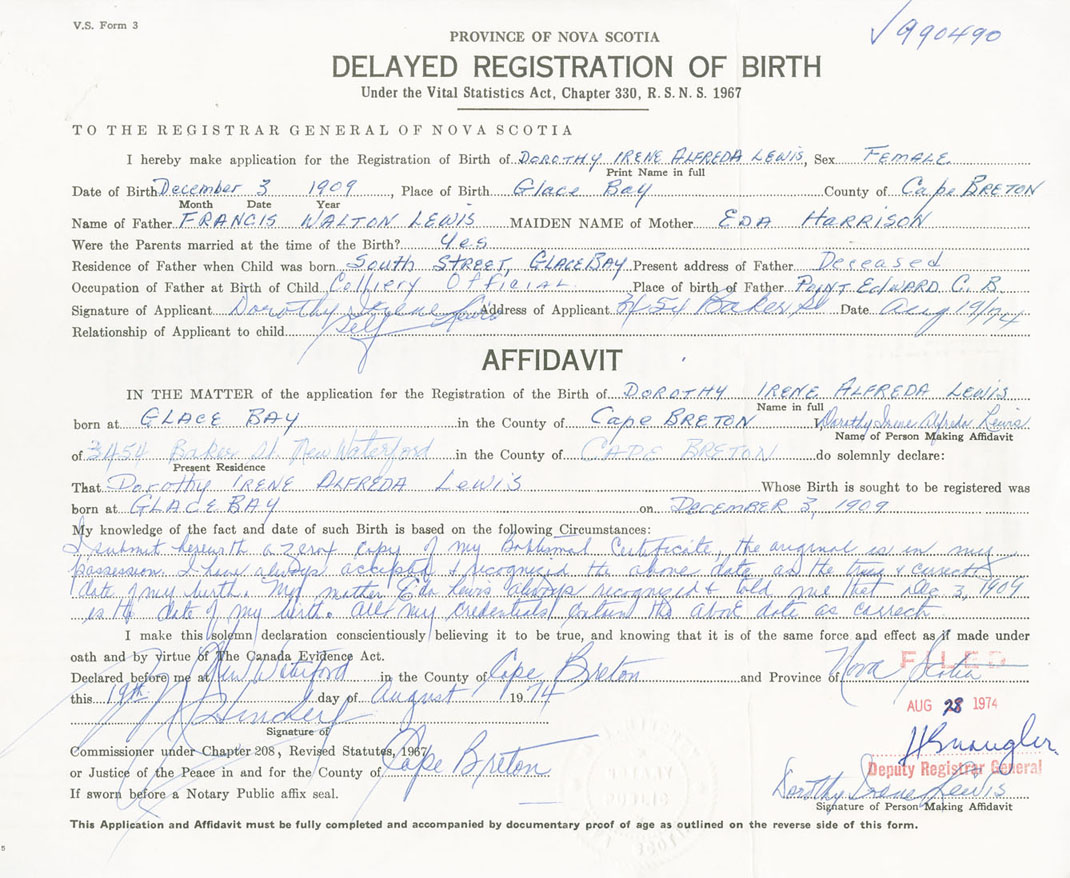 V.S. Form 3
√990490
PROVINCE OF NOVA SCOTIA
DELAYED REGISTRATION OF BIRTH
Under the Vital Statistics Act, Chapter 330, R. S. N. S. 1967
TO THE REGISTRAR GENERAL OF NOVA SCOTIA
I hereby make application for the Registration of Birth of DOROTHY IRENE ALFREDA LEWIS, Sex FEMALE
Print Name in full
Date of Birth December 3 1909, Place of Birth Glace Bay County of Cape BRETON
Month Date Year
Name of Father FRANCIS WALTON LEWIS MAIDEN NAME of Mother EDA HARRISON
Were the Parents married at the time of the Birth? Yes
Residence of Father when Child was born South STREET, GLACE BAY Present address of Father Deceased
Occupation of Father at Birth of Child Colliery Official Place of birth of Father POINT EDWARD C. B.
Signature of Applicant Dorothy Irene Lewis Address of Applicant 3454 Baker St Date Aug 19/74
Relationship of Applicant to child Self
AFFIDAVIT
IN THE MATTER of the application for the Registration of the Birth of DOROTHY IRENE ALFREDA LEWIS
Name in full
born at GLACE BAY in the County of Cape BRETON I, Dorothy Irene Alfreda Lewis
Name of Person Making Affidavit
of 3454 Baker St. New Waterford in the County of CAPE BRETON do solemnly declare:
Present Residence
That Dorothy IRENE ALFREDA LEWIS Whose Birth is sought to be registered was
born at GLACE BAY on DECEMBER 3, 1909
My knowledge of the fact and date of such Birth is based on the following Circumstances:
I submit herewith a zerox copy of my Baptismal Certificate, the original is in my
possession. I have always accepted & recognized the above date as the true & correct
date of my birth. My mother Eda Lewis always recognized & told me that Dec 3, 1909
is the date of my birth. All my credentials contain the above date as correct
I make this solemn declaration conscientiously believing it to be true, and knowing that it is of the same force and effect as if made under
oath and by virtue of The Canada Evidence Act.
Declared before me at New Waterford in the County of Cape Breton and Province of Nova Scotia
FILED
this 19th day of August 1974
AUG 28 1974
Signature of
Commissioner under Chapter 208, Revised Statutes, 1967
or Justice of the Peace in and for the County of Cape Breton
Deputy Registrar General
If sworn before a Notary Public affix seal.
Dorothy Irene Lewis
Signature of Person Making Affidavit
This Application and Affidavit must be fully completed and accompanied by documentary proof of age as outlined on the reverse side of this form.
5